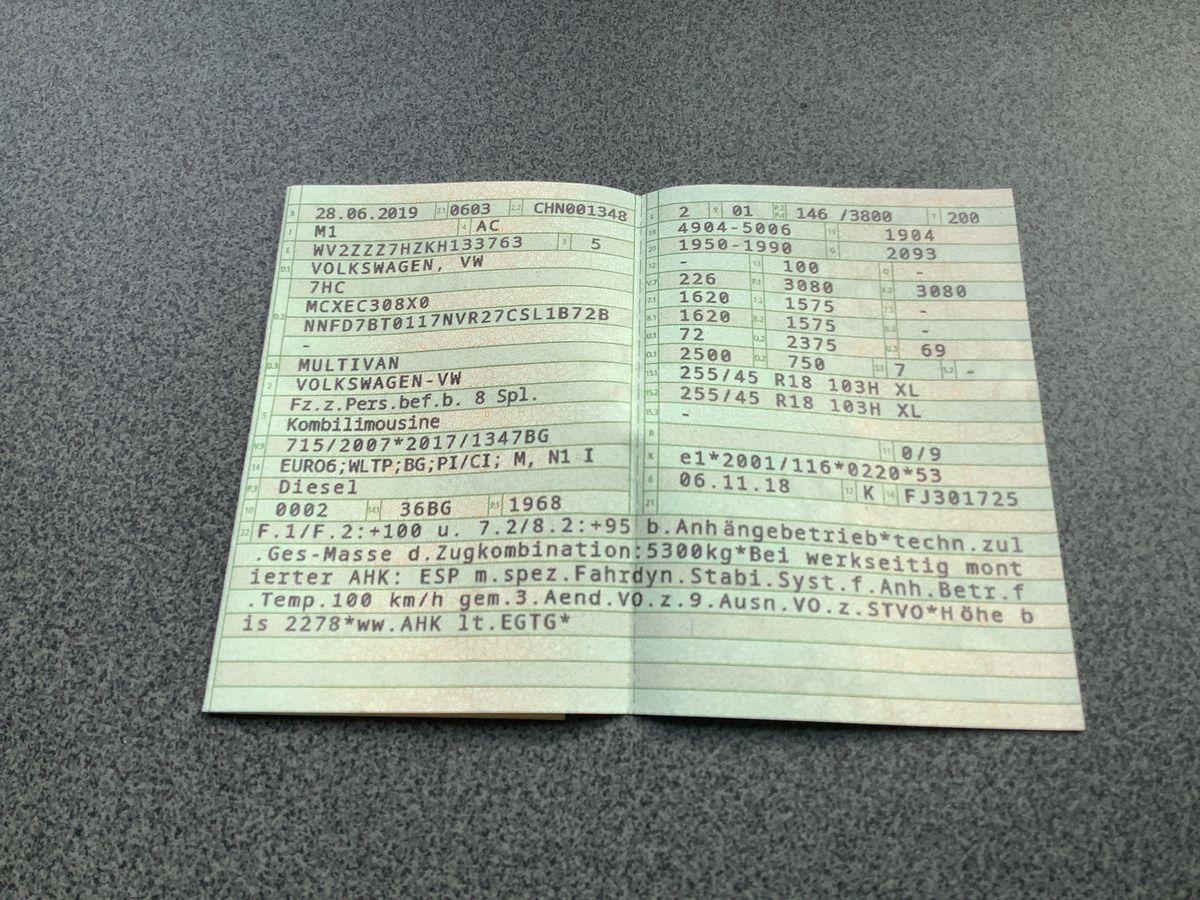 B 28.06.2019 2.1 0603 2.2 CHN001348
J M1 4 AC
E WV2ZZZ7HZKH133763 3 5
D.1 VOLKSWAGEN, VW
7HC
D.2 MCXEC308X0
NNFD7BT0117NVR27CSL1B72B
-
D.3 MULTIVAN
2 VOLKSWAGEN-VW
5 Fz.z.Pers.bef.b. 8 Spl.
Kombilimousine
V.9 715/2007*2017/1347BG
14 EURO6;WLTP;BG;PI/CI; M, N1 I
P.3 Diesel
10 0002 14.1 36BG P.1 1968
L 2 9 01 P.2 P.4 146 /3800 T 200
18 4904-5006 19 1904
20 1950-1990 G 2093
12 - 13 100 Q -
V.7 226 F.1 3080 F.2 3080
7.1 1620 7.2 1575 7.3 -
8.1 1620 8.2 1575 8.3 -
U.1 72 U.2 2375 U.3 69
O.1 2500 O.2 750 S.1 7 S.2 -
15.1 255/45 R18 103H XL
15.2 255/45 R18 103H XL
15.3 -
R 11 0/9
K e1*2001/116*0220*53
6 06.11.18 17 K 16 FJ301725
21
22 F.1/F.2:+100 u. 7.2/8.2:+95 b.Anhängebetrieb*techn.zul
.Ges-Masse d.Zugkombination:5300kg*Bei werkseitig mont
ierter AHK: ESP m.spez.Fahrdyn.Stabi.Syst.f.Anh.Betr.f
.Temp.100 km/h gem.3.Aend.VO.z.9.Ausn.VO.z.STVO*Höhe b
is 2278*ww.AHK lt.EGTG*